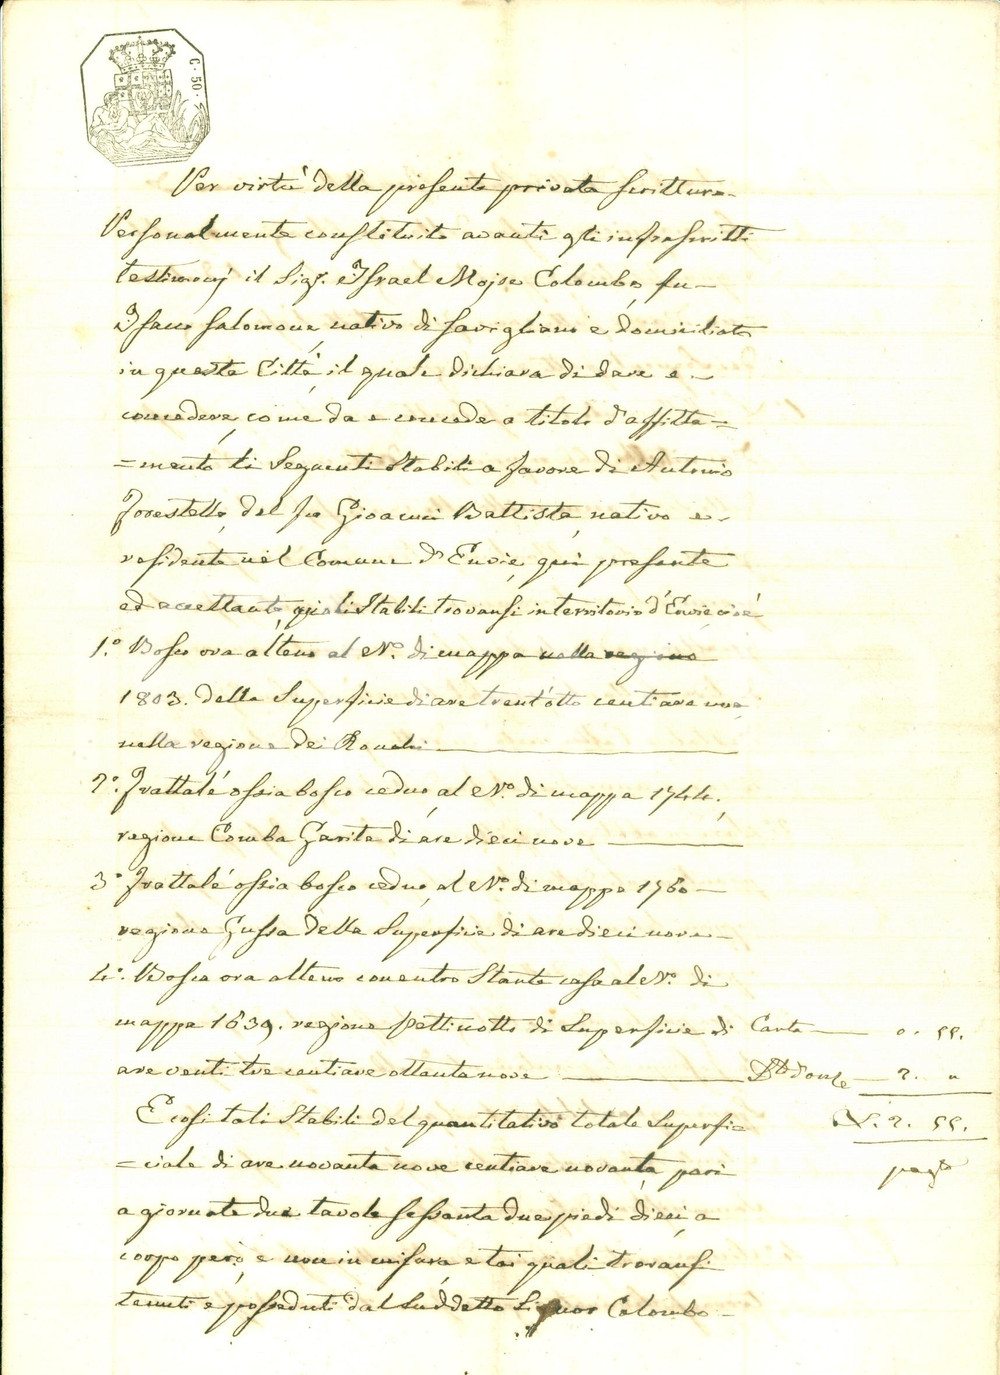 C. 50.
Per virtù della presente privata scrittura
Personalmente constituito avanti gli infrascritti
testimonj il Sigr. Israel Mojse Colombo, fu
Isacco Salomone, nativo di Savigliano e domiciliato
in questa Città, il quale dichiara di dare e
concedere, come da e concede a titolo d'affitta=
=mento li Seguenti Stabili a favore di Antonio
Forestello, del fu Gioanni Battista, nativo e
residente nel Comune d'Envie, qui presente
ed accettante, quali Stabili trovansi in territorio d'Envie cioè
1.° Bosco ora alteno al N.° di mappa nella regione
1803. della Superficie di are trent'otto centiare una,
nella regione dei Ronchi
2.° Frattale ossia bosco ceduo, al N.° di mappa 1744,
regione Comba Garita di are dieci nove
3.° Frattale ossia bosco ceduo, al N.° di mappa 1760
regione Gussa della Superficie di are dieci nove
4.° Bosco ora alteno con entro Stante casa al N.° di
mappa 1639. regione Pettinotti di Superficie di
are venti tre centiare ottanta nove
Carta 0. 55.
2. "
L. 2. 55.
pagto
E così tali Stabili del quantitativo totale Superfi=
=ciale di are novanta nove centiare novanta, pari
a giornate due tavole sessanta due piedi dieci a
corpo però, e non in misura e tai quali trovansi
tenuti e posseduti dal Suddetto Signor Colombo